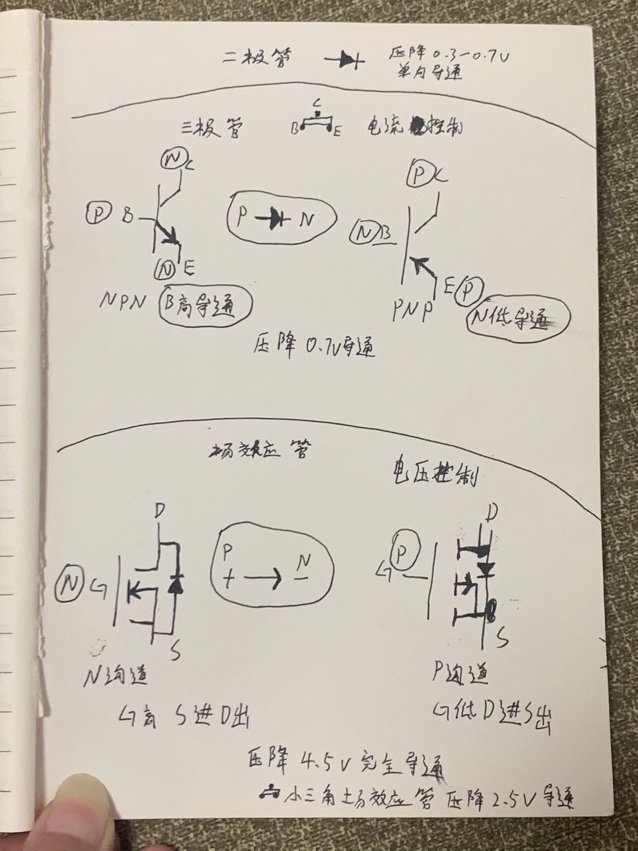 二极管 压降0.3-0.7V
单向导通
三极管 C B E 电流控制
N C P C
P B P N N B
N E E P
NPN B高导通 PNP N低导通
压降0.7V导通
场效应管 电压控制
D P N P D
N G + → - G
S S
N沟道 P沟道
G高 S进D出 G低D进S出
压降4.5V完全导通
小三角场效应管压降2.5V导通